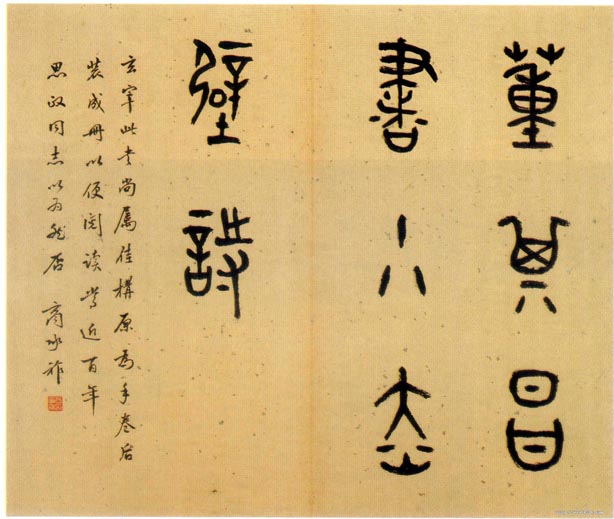 董其昌
書小赤
壁詩
玄宰此书尚属佳構原为手卷后
装成册以便阅读当近百年
思政同志以为然否 商承祚